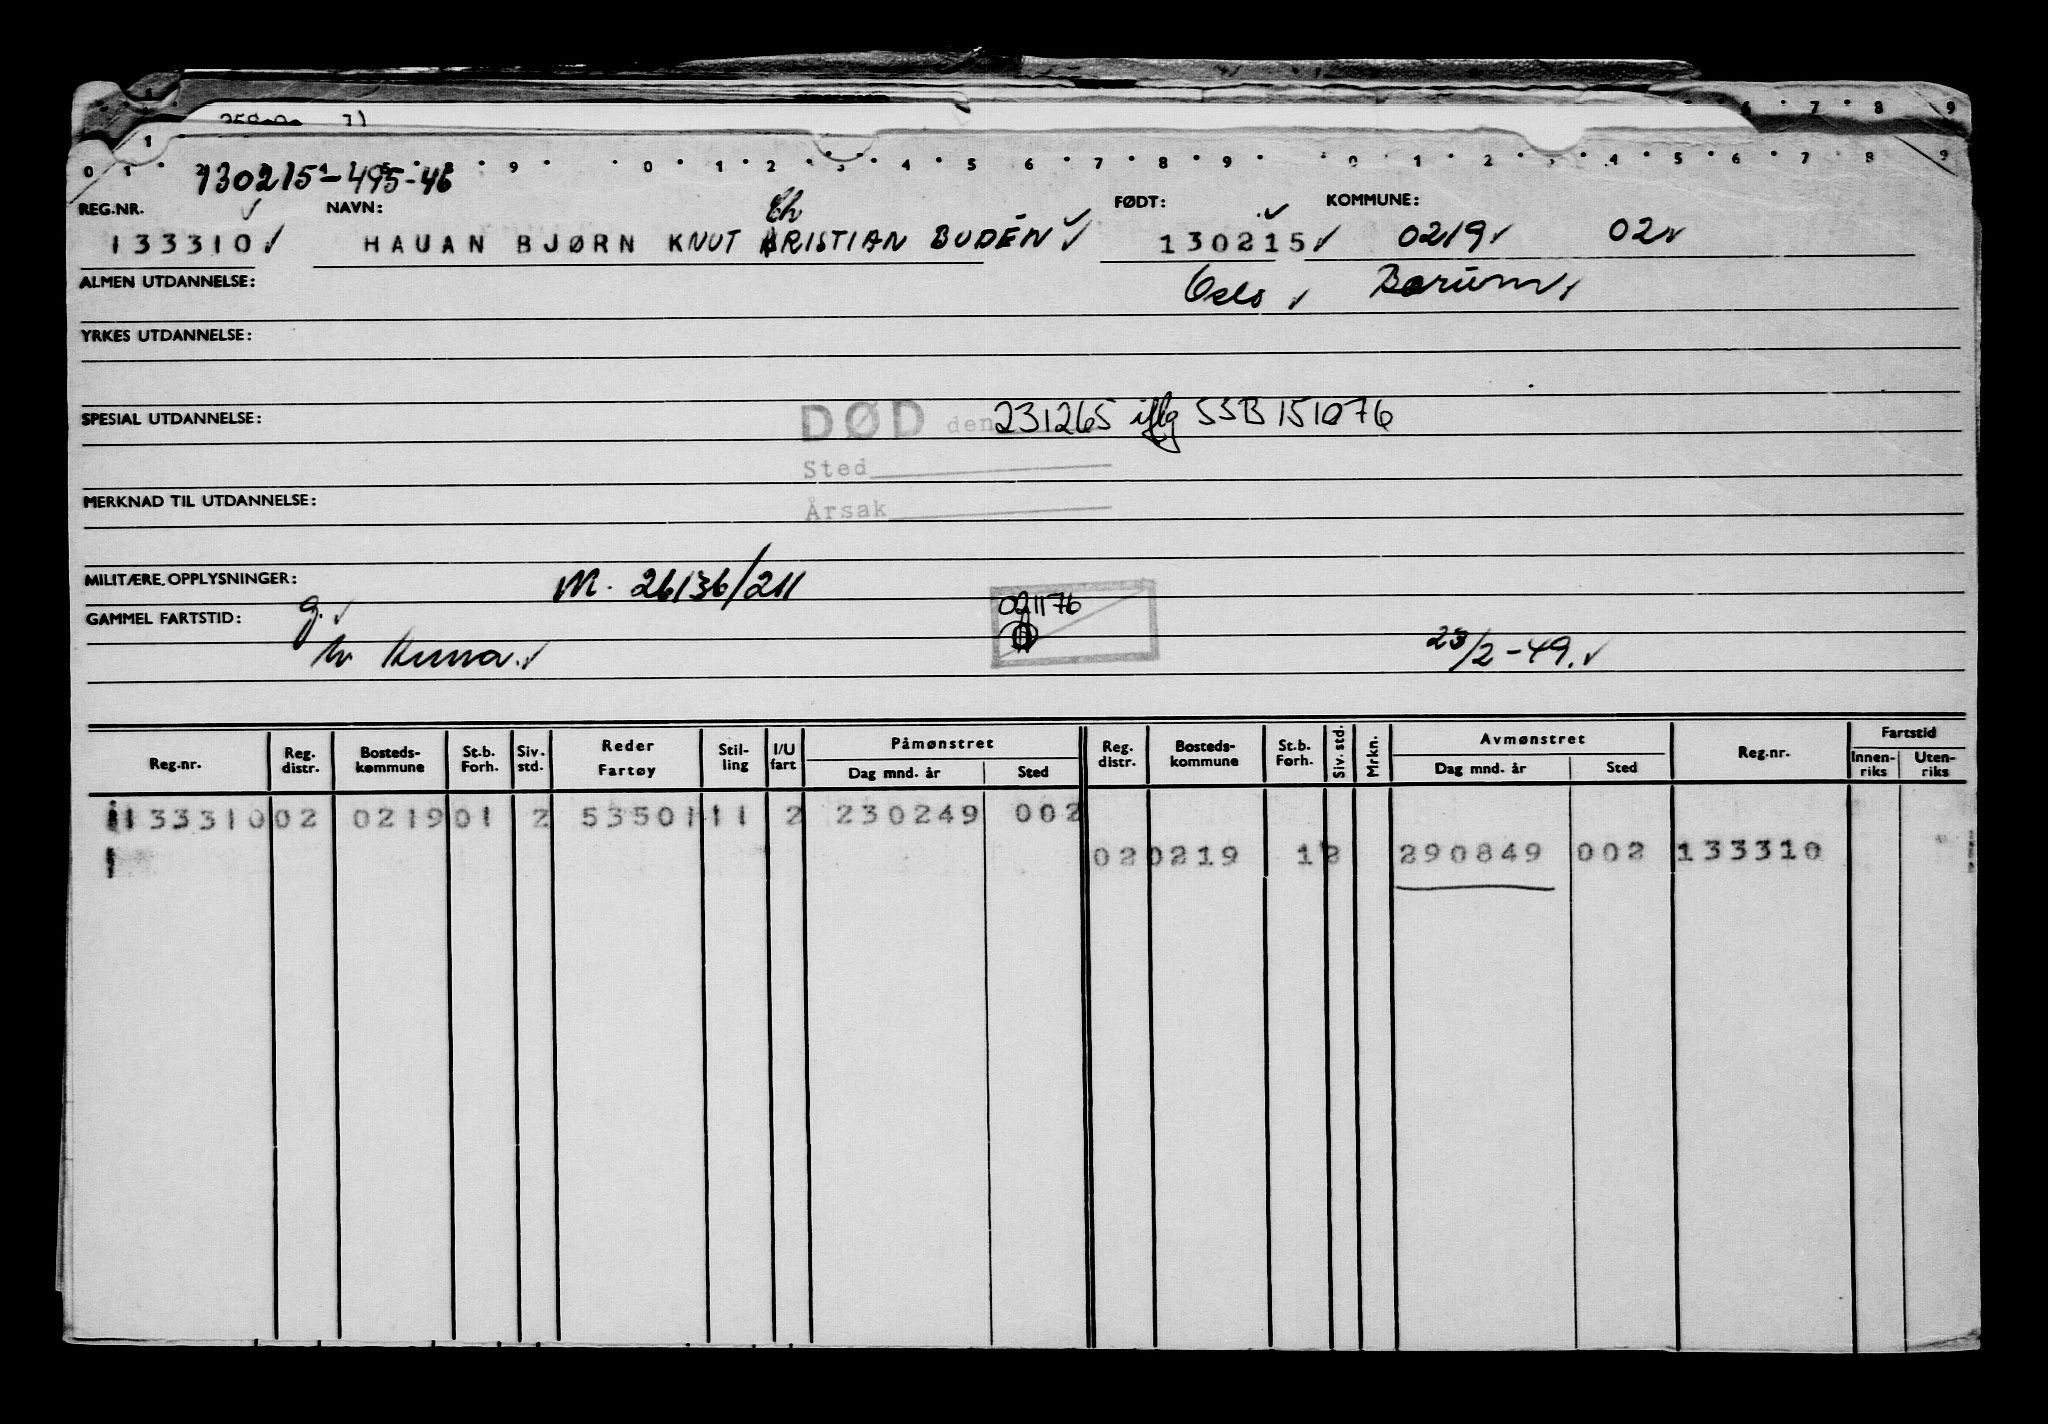 6 7 8 9
1
0 1 2 5 8 9 0 1 2 3 4 5 6 7 8 9 0 1 2 3 4 5 6 7 8 9
130215-495-46
REG.NR. NAVN: Ch FØDT: KOMMUNE:
133310 HAUAN BJØRN KNUT KRISTIAN BUDÉN 130215 0219 02
ALMEN UTDANNELSE: Oslo Bærum
YRKES UTDANNELSE:
SPESIAL UTDANNELSE: DØD den 231265 iflg SSB 151076
Sted
MERKNAD TIL UTDANNELSE: Årsak
MILITÆRE OPPLYSNINGER: M. 26136/211
GAMMEL FARTSTID: g. 021176
23/2-49.
Reg.nr. Reg. distr. Bosteds-kommune St.b. Forh. Siv. std. Reder Fartøy Stil-ling I/U fart Påmønstret Dag mnd. år Sted Reg. distr. Bosteds-kommune St.b. Forh. Siv. std. Mrkn. Avmønstret Dag mnd. år Sted Reg.nr. Fartstid Innen-riks Uten-riks
133310 02 0219 01 2 53501 11 2 230249 002
02 0219 1 2 290849 002 133310